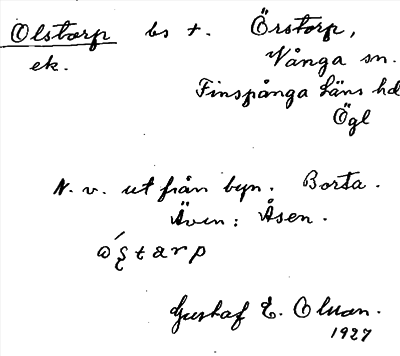 Olstorp bs t. Örstorp,
ek. Vånga sn.
Finspånga läns hd
Ögl
N. v. ut från byn. Borta.
Även: Åsen.
Gustaf E.
1927